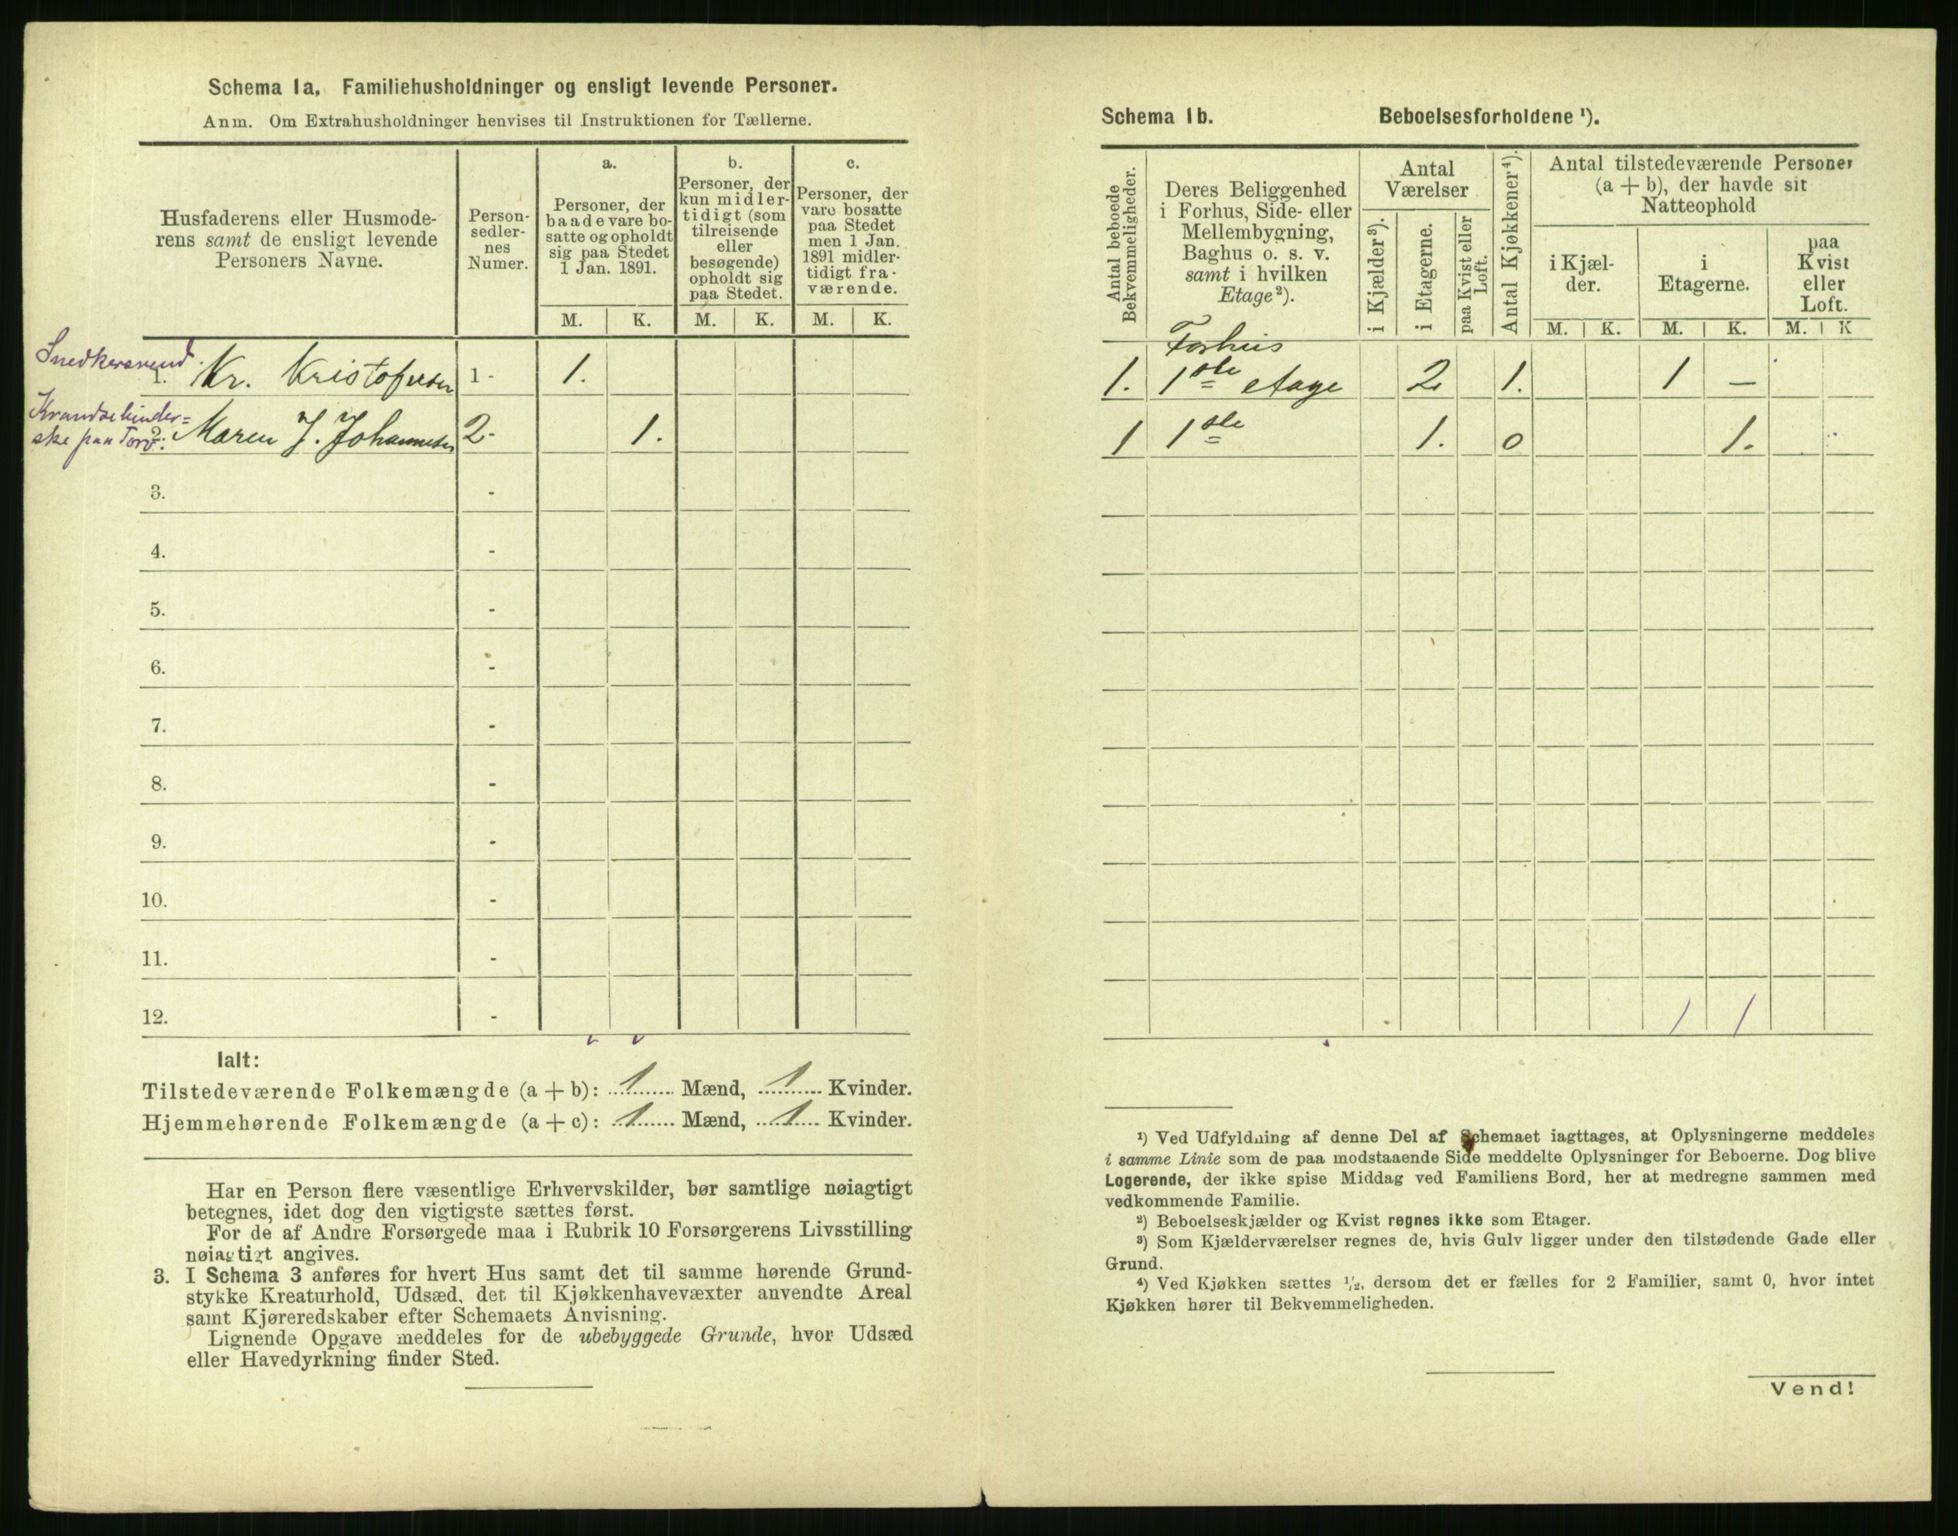 Schema 1a. Familiehusholdninger og ensligt levende Personer.
Anm. Om Extrahusholdninger henvises til Instruktionen for Tællerne.
Husfaderens eller Husmode-
rens samt de ensligt levende
Personers Navne.
Person-
sedler-
nes
Numer.
a.
Personer, der
baade vare bo-
satte og opholdt
sig paa Stedet
1 Jan. 1891.
b.
Personer, der
kun midler-
tidigt (som
tilreisende
eller
besøgende)
opholdt sig
paa Stedet.
c.
Personer, der
vare bosatte
paa Stedet
men 1 Jan.
1891 midler-
tidigt fra-
værende.
M. K. M. K. M. K.
Snedkersvend
1. Kr. Kristofersen 1- 1.
Krandsebinder=
ske paa Torv.
2. Maren J. Johannesen 2- 1.
3. -
4. -
5. -
6. -
7. -
8. -
9. -
10. -
11. -
12. -
Ialt:
Tilstedeværende Folkemængde (a + b): 1 Mænd, 1 Kvinder.
Hjemmehørende Folkemængde (a + c): 1 Mænd, 1 Kvinder.
Har en Person flere væsentlige Erhvervskilder, bør samtlige nøiagtigt
betegnes, idet dog den vigtigste sættes først.
For de af Andre Forsørgede maa i Rubrik 10 Forsørgerens Livsstilling
nøiagtigt angives.
3. I Schema 3 anføres for hvert Hus samt det til samme hørende Grund-
stykke Kreaturhold, Udsæd, det til Kjøkkenhavevæxter anvendte Areal
samt Kjøreredskaber efter Schemaets Anvisning.
Lignende Opgave meddeles for de ubebyggede Grunde, hvor Udsæd
eller Havedyrkning finder Sted.
Schema 1b. Beboelsesforholdene ¹).
Antal beboede
Bekvemmeligheder.
Deres Beliggenhed
i Forhus, Side- eller
Mellembygning,
Baghus o. s. v.
samt i hvilken
Etage ²).
Antal
Værelser
i Kjælder ³).
i Etagerne.
paa Kvist eller
Loft.
Antal Kjøkkener ⁴).
Antal tilstedeværende Personer
(a + b), der havde sit
Natteophold
i Kjæl-
der.
i
Etagerne.
paa
Kvist
eller
Loft.
M. K. M. K. M. K
Forhus
1. 1ste etage 2. 1. 1 —
1 1ste 1. 0 1.
1 1
¹) Ved Udfyldning af denne Del af Schemaet iagttages, at Oplysningerne meddeles
i samme Linie som de paa modstaaende Side meddelte Oplysninger for Beboerne. Dog blive
Logerende, der ikke spise Middag ved Familiens Bord, her at medregne sammen med
vedkommende Familie.
²) Beboelseskjælder og Kvist regnes ikke som Etager.
³) Som Kjælderværelser regnes de, hvis Gulv ligger under den tilstødende Gade eller
Grund.
⁴) Ved Kjøkken sættes ½, dersom det er fælles for 2 Familier, samt 0, hvor intet
Kjøkken hører til Bekvemmeligheden.
Vend!